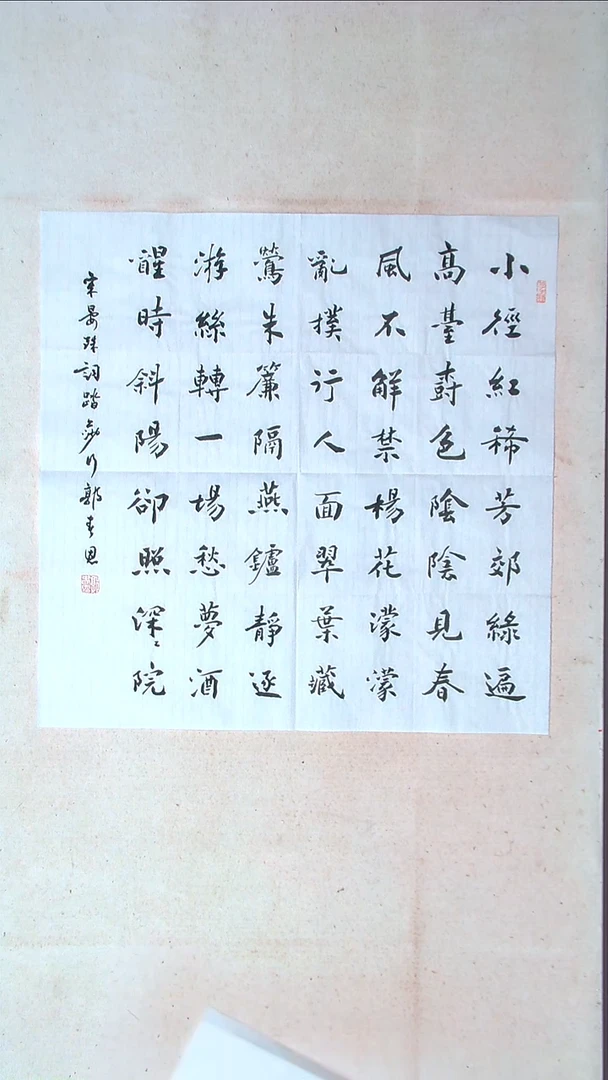 小徑紅稀芳郊綠遍
高臺樹色陰陰見春
風不解禁楊花濛濛
亂撲行人面翠葉藏
鶯朱簾隔燕鑪靜逐
游絲轉一場愁夢酒
醒時斜陽卻照深〻院
宋晏殊詞踏莎行郭恩